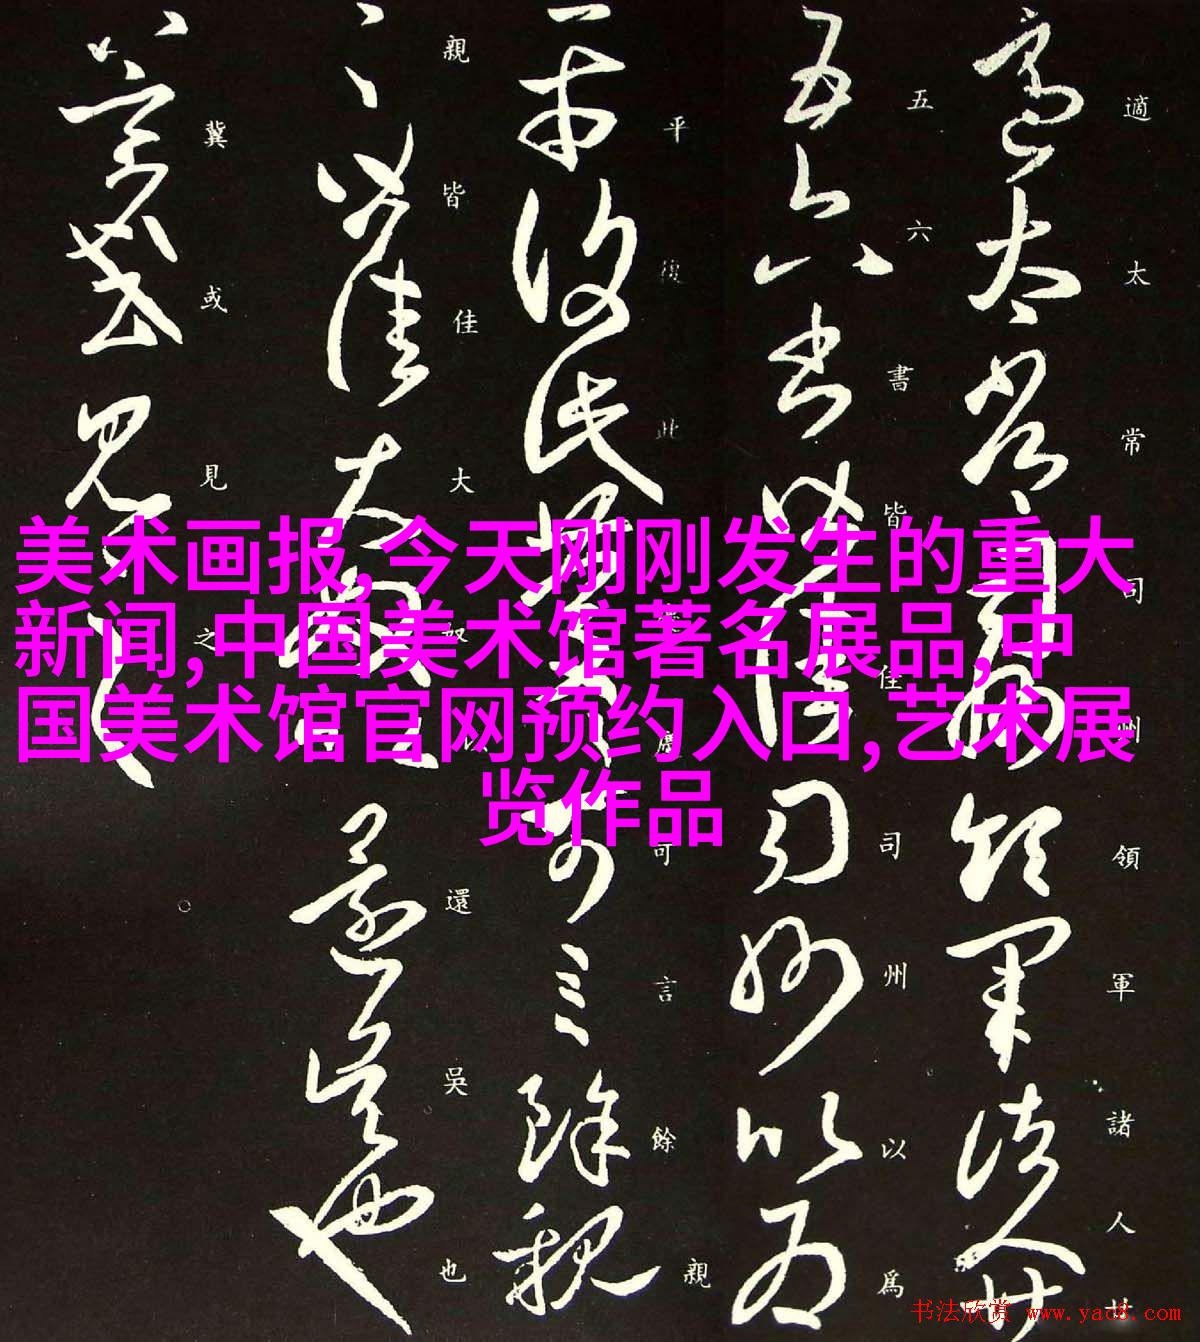 美术画报,今天刚刚发生的重大
新闻,中国美术馆著名展品,中
国美术馆官网预约入口,艺术展
览作品
適太常司州領軍諸人廿
五六書皆佳司州以為
平復此慶慶可言餘親
親皆佳大奴以還吳也
冀或見之
书法欣赏 www.yac8.com